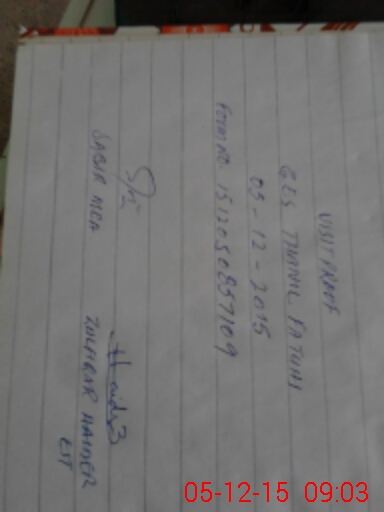 VISIT PROOF
GES THATHI FATUHI
05-12-2015
FORM NO. 151205085 7109
S/n
SABIR MEA
Haider
ZULFIQAR HAIDER
EST
05-12-15 09:03